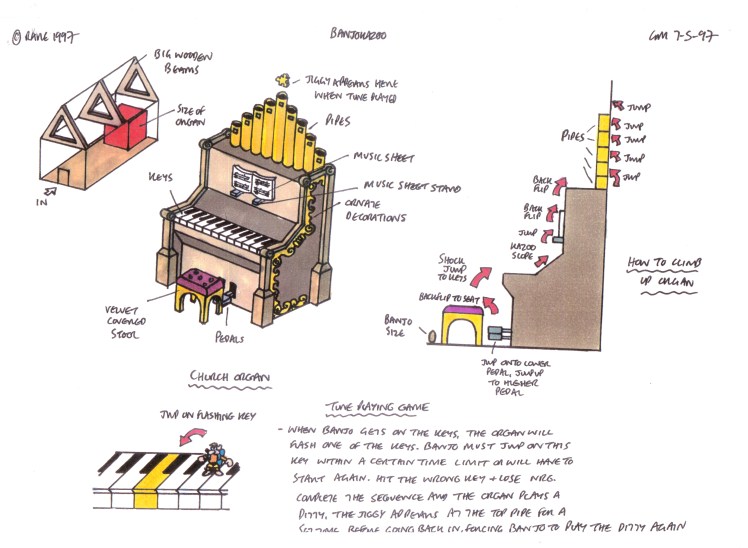 © RARE 1997
BANJOKAZOO
GM 7-5-97
BIG WOODEN
BEAMS
SIZE OF
ORGAN
IN
JIGGY APPEARS HERE
WHEN TUNE PLAYED
PIPES
MUSIC SHEET
MUSIC SHEET STAND
ORNATE
DECORATIONS
KEYS
VELVET
COVERED
STOOL
PEDALS
CHURCH ORGAN
JUMP
JUMP
JUMP
JUMP
JUMP
PIPES
BACK
FLIP
BACK
FLIP
JUMP
KAZOO
SLOPE
SHOCK
JUMP
TO KEYS
BACKFLIP TO SEAT
BANJO
SIZE
JUMP ONTO LOWER
PEDAL, JUMP UP
TO HIGHER
PEDAL
HOW TO CLIMB
UP ORGAN
JUMP ON FLASHING KEY
TUNE PLAYING GAME
- WHEN BANJO GETS ON THE KEYS, THE ORGAN WILL
FLASH ONE OF THE KEYS. BANJO MUST JUMP ON THIS
KEY WITHIN A CERTAIN TIME LIMIT OR WILL HAVE TO
START AGAIN. HIT THE WRONG KEY + LOSE NRG.
COMPLETE THE SEQUENCE AND THE ORGAN PLAYS A
DITTY. THE JIGGY APPEARS AT THE TOP PIPE FOR A
SET TIME BEFORE GOING BACK IN, FORCING BANJO TO PLAY THE DITTY AGAIN